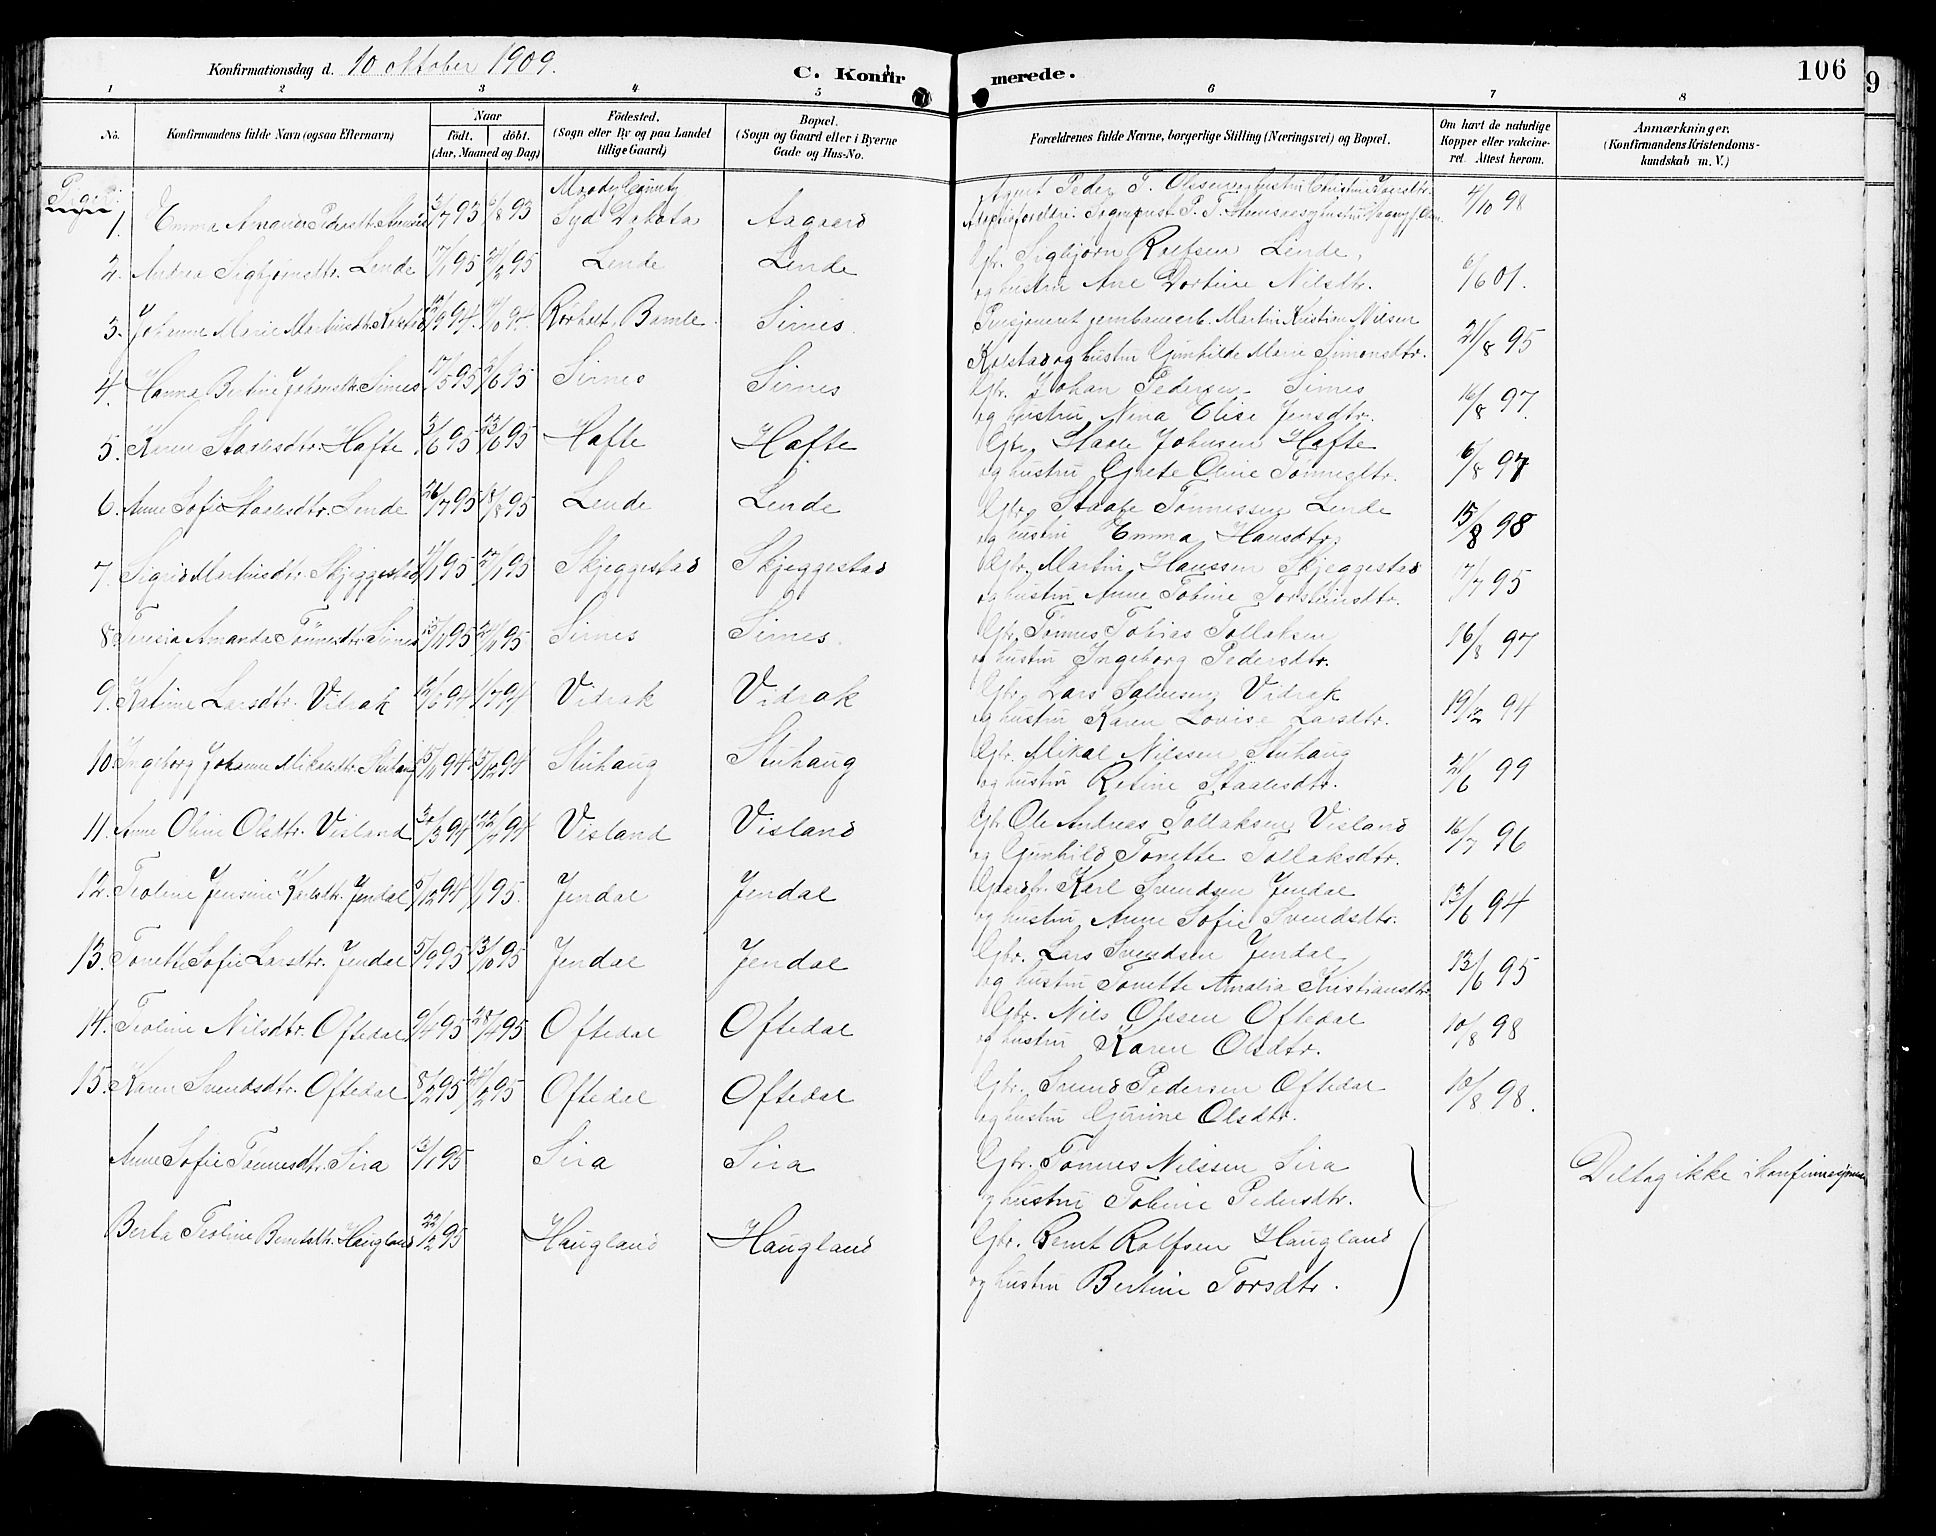 Konfirmationsdag d. 10 oktober 1909. C. Konfirmerede. 106
1 2 3 4 5 6 7 8
No. Konfirmandens fulde Navn (ogsaa Efternavn) Naar født. døbt. (Aar, Maaned og Dag) Fødested. (Sogn eller By og paa Landet tillige Gaard) Bopæl. (Sogn og Gaard eller i Byerne Gade og Hus-No. Forældrenes fulde Navne, borgerlige Stilling (Næringsvei) og Bopæl. Om havt de naturlige Kopper eller vakcineret. Attest herom. Anmærkninger. (Konfirmandens Kristendomskundskab m. V.)
Piger
Moody County Agent Peder T. Olssen og hustru Christine
1. Emma Amanda Pedersdtr. 3/7 93 6/8 93 Syd Dakota Aagaard Adoptivforældre: 4/10 98
2. Andrea Sigbjørnsdtr. Lende 17/1 95 95 Lende Lende Gbr. Sigbjørn Rolfsen Lende,
og hustru Ane Dortine Nilsdtr. 6/6 01.
3. Johanne Marie Martinsdtr. Kolstad 94. Rørholt, Bamle. Sirnes. Pensjoneret jernbanearb. Martin Kristian Nilsen
Kolstad og hustru Gunhilde Marie Simonsdtr. 21/8 95
4. Hanna Bertine Johansdtr. Sirnes 17/5 95 6/6 95 Sirnes Sirnes Gbr. Johan Pedersen Sirnes
og hustru Nina Elise Jensdtr. 16/8 97.
5. Karen Staalesdtr. Hafte 3/6 95 23/6 95 Hafte Hafte Gbr. Staale Johnsen Hafte
og hustru Grete Oline Tønnesdtr. 6/8 97
6. Anne Sofie Staalesdtr. Lende 26/7 95 18/8 95 Lende Lende Gbr. Staale Tønnessen Lende
og hustru Emma Hansdtr. 15/8 98
7. Sigrid Martinsdtr. Skjeggestad 11/1 95 27/1 95 Skjeggestad Skjeggestad Gbr. Martin Hanssen Skjeggestad
og hustru Anne Tobine Torstensdtr. 17/7 95
8. Teresia Amanda Tønnesdtr. Sirnes 95 95 Sirnes Sirnes. Gbr. Tønnes Tobias Tollaksen
og hustru Ingeborg Pedersdtr. 16/8 97
9. Katrine Larsdtr. Vidrak 12/6 94 1/7 94 Vidrak Vidrak Gbr. Lars Salvesen Vidrak
og hustru Karen Lovise Larsdtr. 19/12 94
10. Ingeborg Johanne Mikalsdtr. Stuhaug 15/11 94. 5/12 94 Stuhaug Stuhaug Gbr. Mikal Nilssen Stuhaug
og hustru Retine Staalesdtr. 21/6 99
11. Anne Oline Olsdtr. Visland 30/3 94 22/4 94 Visland Visland Gbr. Ole Andreas Tollaksen Visland
og Gunhild Tonette Tollaksdtr. 16/7 96
12. Teoline Jensine Karlsdtr. Jendal 5/12 94 1/1 95. Jendal Jendal Gaardb. Karl Svendsen Jendal
og hustru Anne Sofie Svendsdtr. 13/6 94
13. Tonette Sofie Larsdtr. Jendal 5/9 95 13/10 95 Jendal Jendal Gbr. Lars Svendsen Jendal
og hustru Tonette Amalia Kristiansdtr. 13/6 95
14. Teoline Nilsdtr. Oftedal 9/4 95 28/4 95 Oftedal Oftedal Gbr. Nils Olssen Oftedal
og hustru Karen Olsdtr. 10/8 98
15. Karen Svendsdtr. Oftedal 8/2 95 24/2 95 Oftedal Oftedal Gbr. Svend Pedersen Oftedal
og hustru Gurine Olsdtr. 10/8 98.
Anne Sofie Tønnesdtr. Sira 3/1 95 Sira Sira Gbr. Tønnes Nilssen Sira
og hustru Tobine Pedersdtr. Deltog ikke i konfirmasjonen
Berta Teoline Berntsdtr. Haugland 22/2 95 Haugland Haugland Gbr. Bernt Rolfsen Haugland
og hustru Bertine Torsdtr.